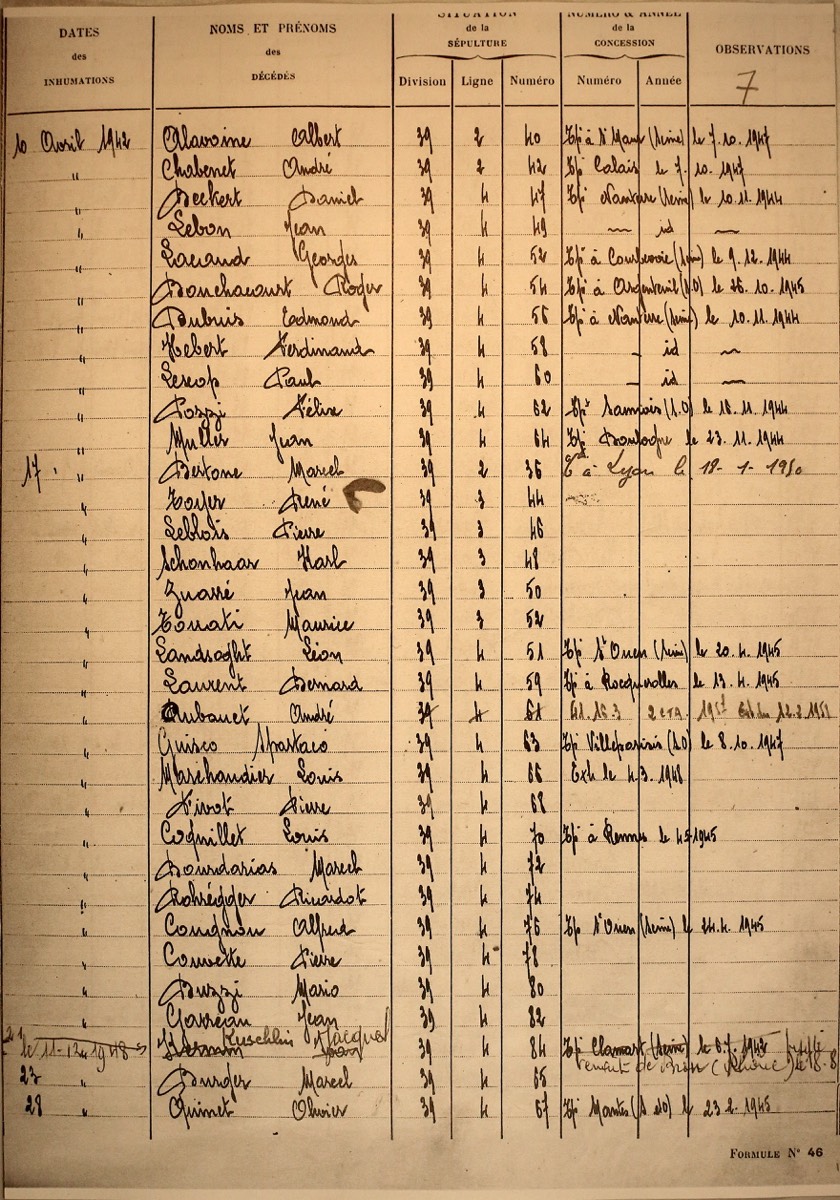 DATES des INHUMATIONS
NOMS ET PRÉNOMS des DÉCÉDÉS
SITUATION de la SÉPULTURE
NUMÉRO & ANNÉE de la CONCESSION
OBSERVATIONS
Division Ligne Numéro Numéro Année
7
10 Avril 1942 Alavoine Albert 39 2 40 Tpé à St Maur (Seine) le 7.10.1947
" Chabenet André 39 2 42 Tpé Calais le 7.10.1947
" Bechert Daniel 39 4 47 Tpé Nanterre (Seine) le 10.11.1944
" Lebon Jean 39 4 49 — id —
" Lacaud Georges 39 4 52 Tpé à Courbevoie (Seine) le 9.12.1944
" Bonchacourt Roger 39 4 54 Tpé à Argenteuil (S.O) le 26.10.1945
" Dubuis Edmond 39 4 56 Tpé à Nanterre (Seine) le 10.11.1944
" Hebert Ferdinand 39 4 58 - id —
" Lescop Paul 39 4 60 - id —
" Pozzi Félix 39 4 62 Tpé Samois (S.O) le 16.11.1944
" Muller Jean 39 4 64 Tpé Boulogne le 23.11.1944
17 " Bertone Marcel 39 2 36 à Lyon le 18-1-1950
" Toyer René 39 3 44
" Leblois Pierre 39 3 46
" Schonhaar Karl 39 3 48
" Zuarré Jean 39 3 50
" Touati Maurice 39 3 52
" Landsoght Léon 39 4 51 Tpé St Ouen (Seine) le 20.4.1945
" Laurent Bernard 39 4 59 Tpé à Rocquerolles le 13.4.1945
" Aubouet André 39 4 61
" Guisco Spartaco 39 4 63 Tpé Villeparisis (S.O) le 8.10.1947
" Marchandier Louis 39 4 66 Exh le 4.3.1948
" Tirot Pierre 39 4 68
" Coquillet Louis 39 4 70 Tpé à Rennes le 1945
" Bourdarias Marcel 39 4 72
" Rohregger Ricardot 39 4 74
" Cougnon Alfred 39 4 76 Tpé St Ouen (Seine) le 24.4.1945
" Couvette Pierre 39 4 78
" Buzzi Mario 39 4 80
" Garreau Jean 39 4 82
le 11-12-1948 Kuschlin Jacques 39 4 84 Tpé Clamart (Seine) le
23 " Burger Marcel 39 4 65
28 " Quinet Olivier 39 4 67 Tpé Mantes (S et O) le 23.2.1945
FORMULE N° 46